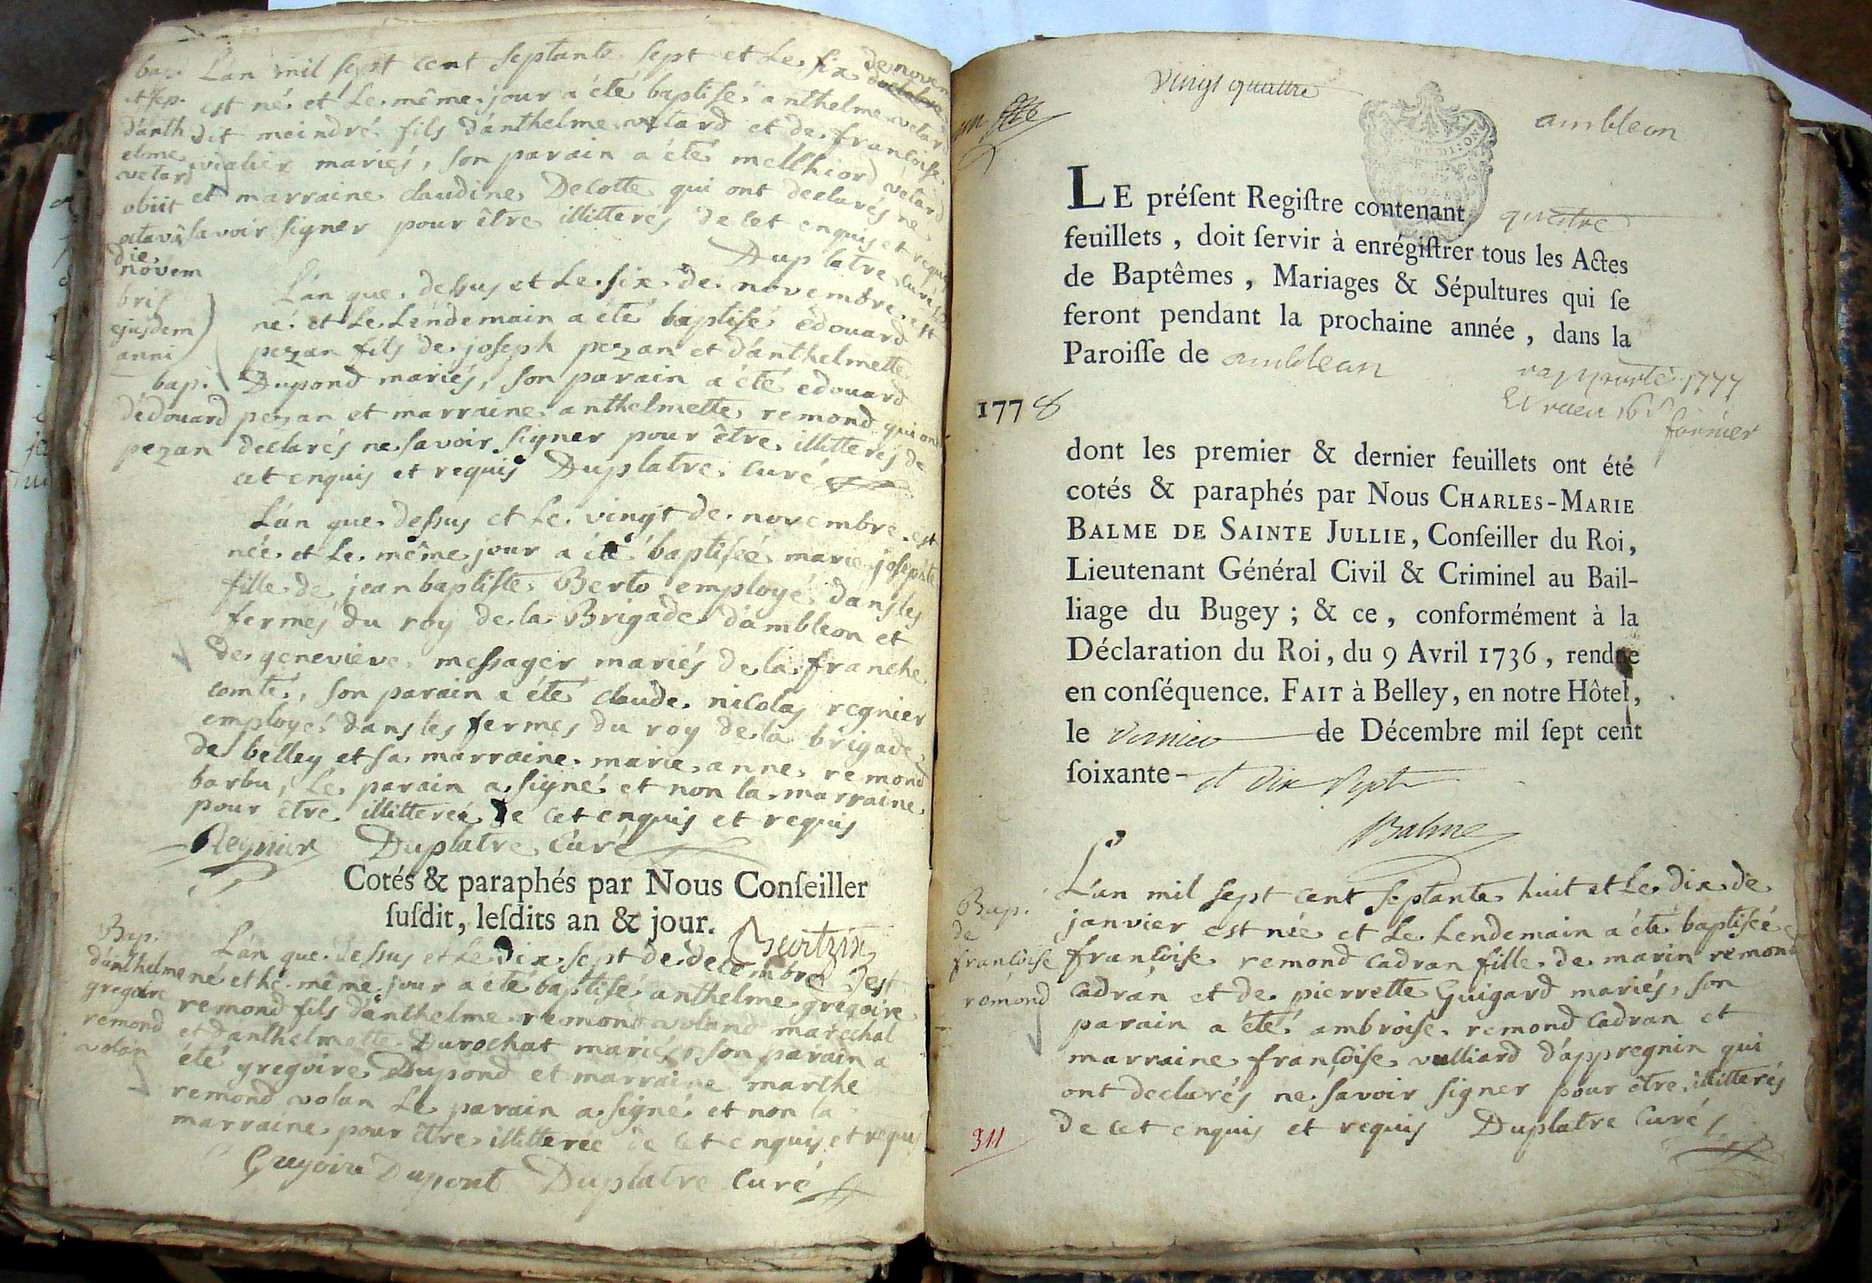 bap. L'an mil sept cent septante sept et le six de novem
et sep. est né et le même jour a été baptisé anthelme velard
d'anth dit meindré fils d'anthelme velard et de francoise
elme vialier mariés, son parain a été melchiord velard
velard et marraine claudine Decotte qui ont declarés ne
obiit
octavâ savoir signer pour être illitteres de cet enquis et requis
die Duplatre curé
novem
bris L'an que dessus et le six de novembre est
ejusdem né et le lendemain a été baptisé edouard
anni pezan fils de joseph pezan et d'anthelmette
bap. Dupond mariés, son parain a été edouard
d'edouard pezan et marraine anthelmette remond qui ont
pezan declarés ne savoir signer pour être illitteres de
cet enquis et requis Duplatre Curé
L'an que dessus et le vingt de novembre est
née et le même jour a été baptisée marie josephte
fille de jean baptiste Berto employé dans les
fermes du roy de la Brigade d'ambleon et
de genevieve messager mariés de la franche
comté, son parain a été claude nicolas regnier
employé dans les fermes du roy de la brigade
de belley et sa marraine marie anne remond
barbu, le parain a signé et non la marraine
pour être illitterée de cet enquis et requis
Regnier Duplatre Curé
Cotés & paraphés par Nous Conseiller
susdit, lesdits an & jour.
Bap. L'an que dessus et le dix sept de decembre est
d'anthelme né et le même jour a été baptisé anthelme gregoire
gregoire remond fils d'anthelme remond voland marechal
remond et d'anthelmette Durochat mariés, son parain a
volan été gregoire Dupond et marraine marthe
remond volan le parain a signé et non la
marraine pour être illitterée de cet enquis et requis
Gregoire Dupont Duplatre Curé
vingt quattre
ambleon
LE présent Registre contenant quatre
feuillets, doit servir à enrégistrer tous les Actes
de Baptêmes, Mariages & Sépultures qui se
feront pendant la prochaine année, dans la
Paroisse de ambleon
1777
1778
dont les premier & dernier feuillets ont été
cotés & paraphés par Nous CHARLES-MARIE
BALME DE SAINTE JULLIE, Conseiller du Roi,
Lieutenant Général Civil & Criminel au Bail-
liage du Bugey; & ce, conformément à la
Déclaration du Roi, du 9 Avril 1736, rendue
en conséquence. FAIT à Belley, en notre Hôtel,
le dernier de Décembre mil sept cent
soixante- et dix sept
Balme
L'an mil sept cent septante huit et le dix de
Bap. janvier est née et le lendemain a été baptisée
de
francoise francoise remond cadran fille de marin remond
remond cadran et de pierrette Guigard mariés, son
parain a été ambroise remond cadran et
marraine françoise vulliard d'appregnin qui
ont declarés ne savoir signer pour être illitterés
de cet enquis et requis Duplatre Curé
311